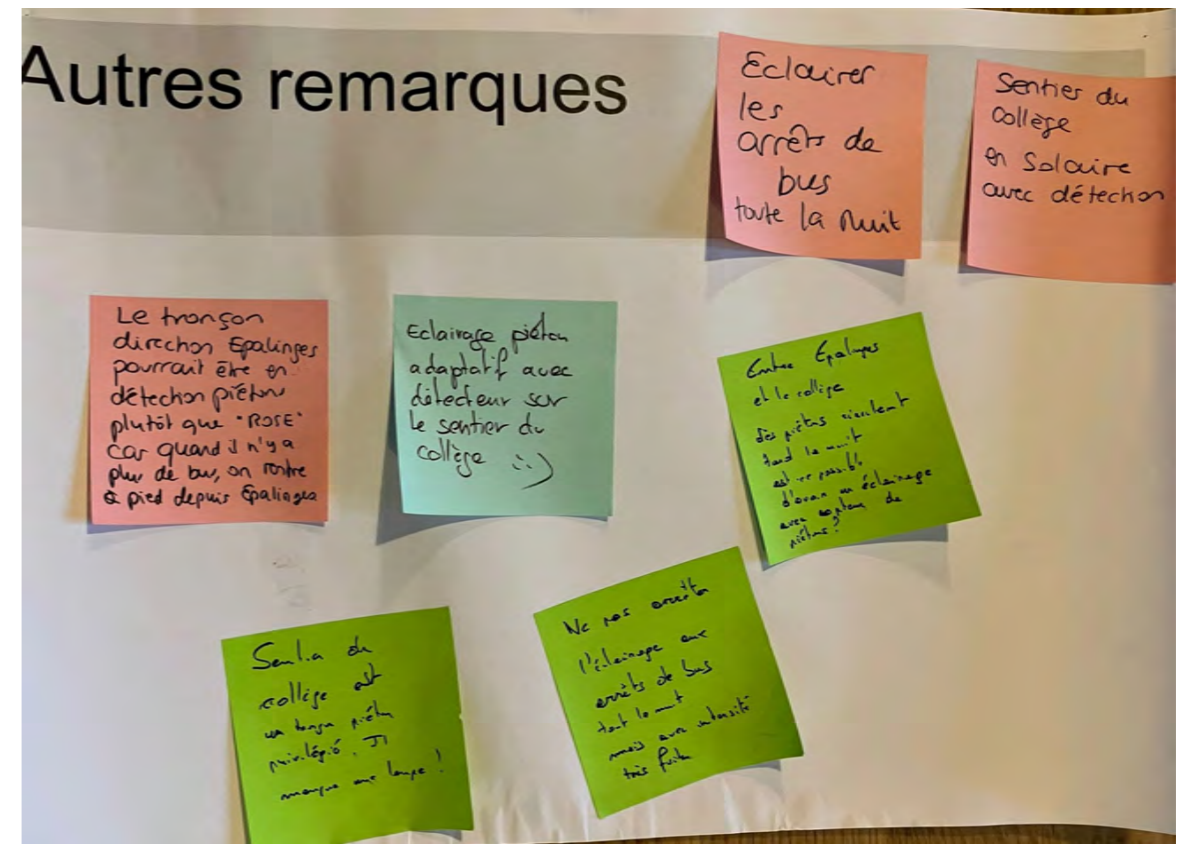 Autres remarques
Eclairer
les
arrêts de
bus
toute la nuit
Sentier du
collège
en Solaire
avec détection
Le tronçon
direction Epalinges
pourrait être en
détection piétons
plutôt que "ROSE"
car quand il n'y a
plus de bus, on rentre
à pied depuis Epalinges
Eclairage piéton
adaptatif avec
détecteur sur
le sentier du
collège :-)
Entre Epalinges
et le collège
des piétons circulent
tard la nuit
est-ce possible
d'avoir un éclairage
avec capteur de
piétons?
Sentier du
collège est
un tronçon piéton
privilégié. Il
manque une lampe!
Ne pas arrêter
l'éclairage aux
arrêts de bus
tout la nuit
mais avec intensité
très faible